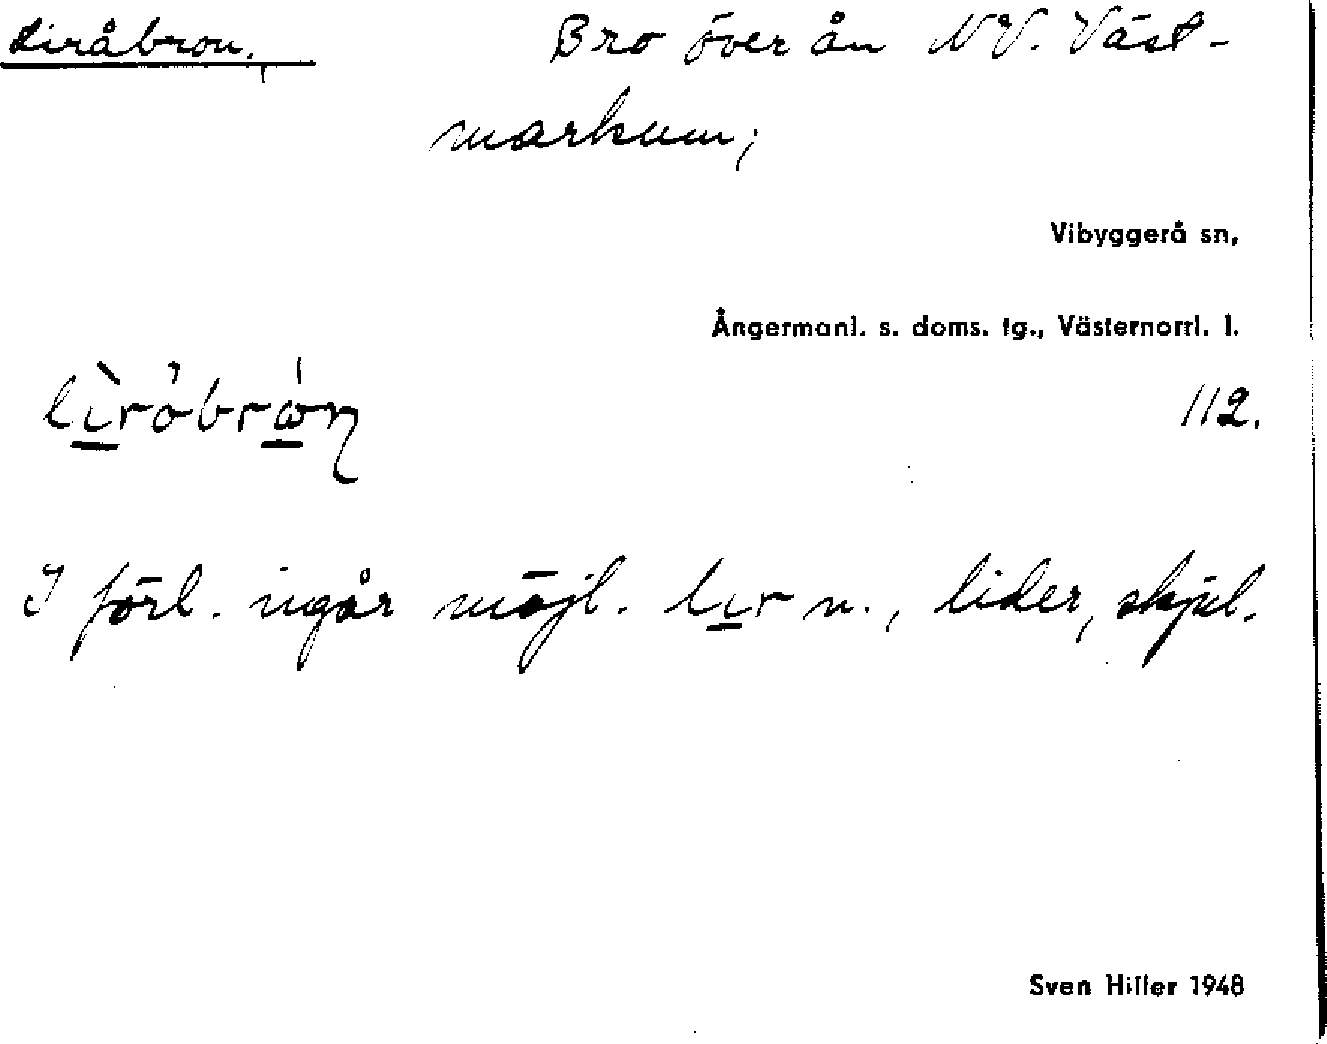 Liråbron, Bro över ån NV. Väst-
markum;
Vibyggerå sn,
Ångermanl. s. doms. tg., Västernorrl. l.
lìròbrón
112.
I förl. ingår möjl. lir n., lider, skjul.
Sven Hiller 1948